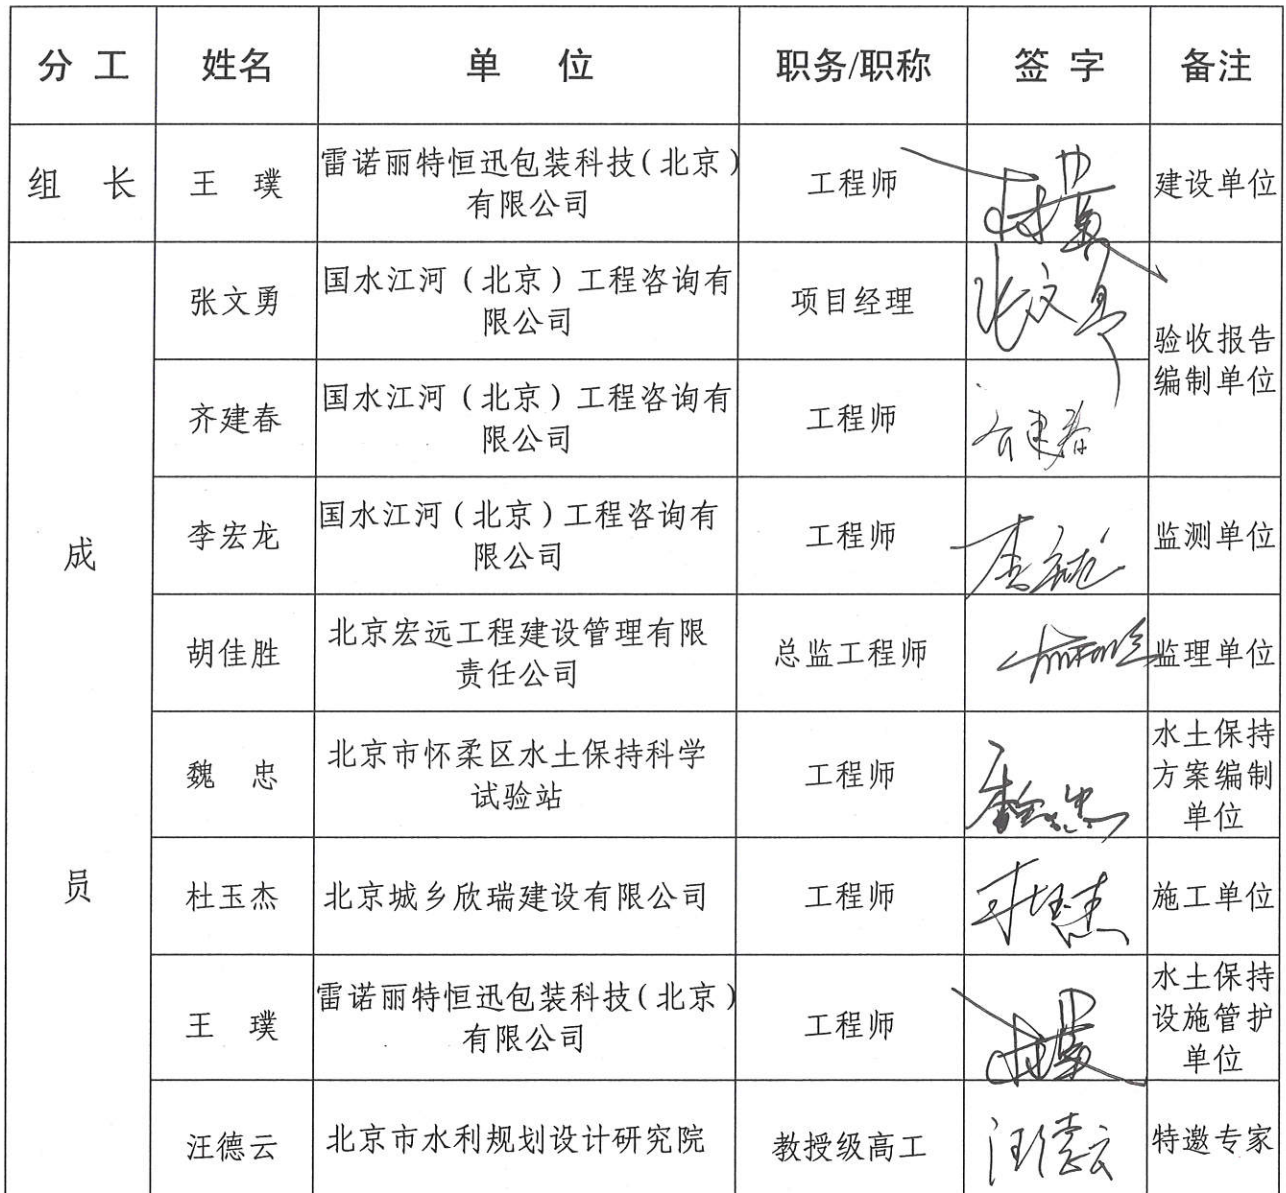 分 工 姓名 单 位 职务/职称 签 字 备注
组 长 王 璞 雷诺丽特恒迅包装科技(北京)
有限公司 工程师 建设单位
成
员
张文勇 国水江河(北京)工程咨询有
限公司 项目经理 张文勇
验收报告
编制单位
齐建春 国水江河(北京)工程咨询有
限公司 工程师 齐建春
李宏龙 国水江河(北京)工程咨询有
限公司 工程师 李宏龙 监测单位
胡佳胜 北京宏远工程建设管理有限
责任公司 总监工程师 监理单位
魏 忠 北京市怀柔区水土保持科学
试验站 工程师 魏忠 水土保持
方案编制
单位
杜玉杰 北京城乡欣瑞建设有限公司 工程师 杜玉杰 施工单位
王 璞 雷诺丽特恒迅包装科技(北京)
有限公司 工程师 水土保持
设施管护
单位
汪德云 北京市水利规划设计研究院 教授级高工 汪德云 特邀专家